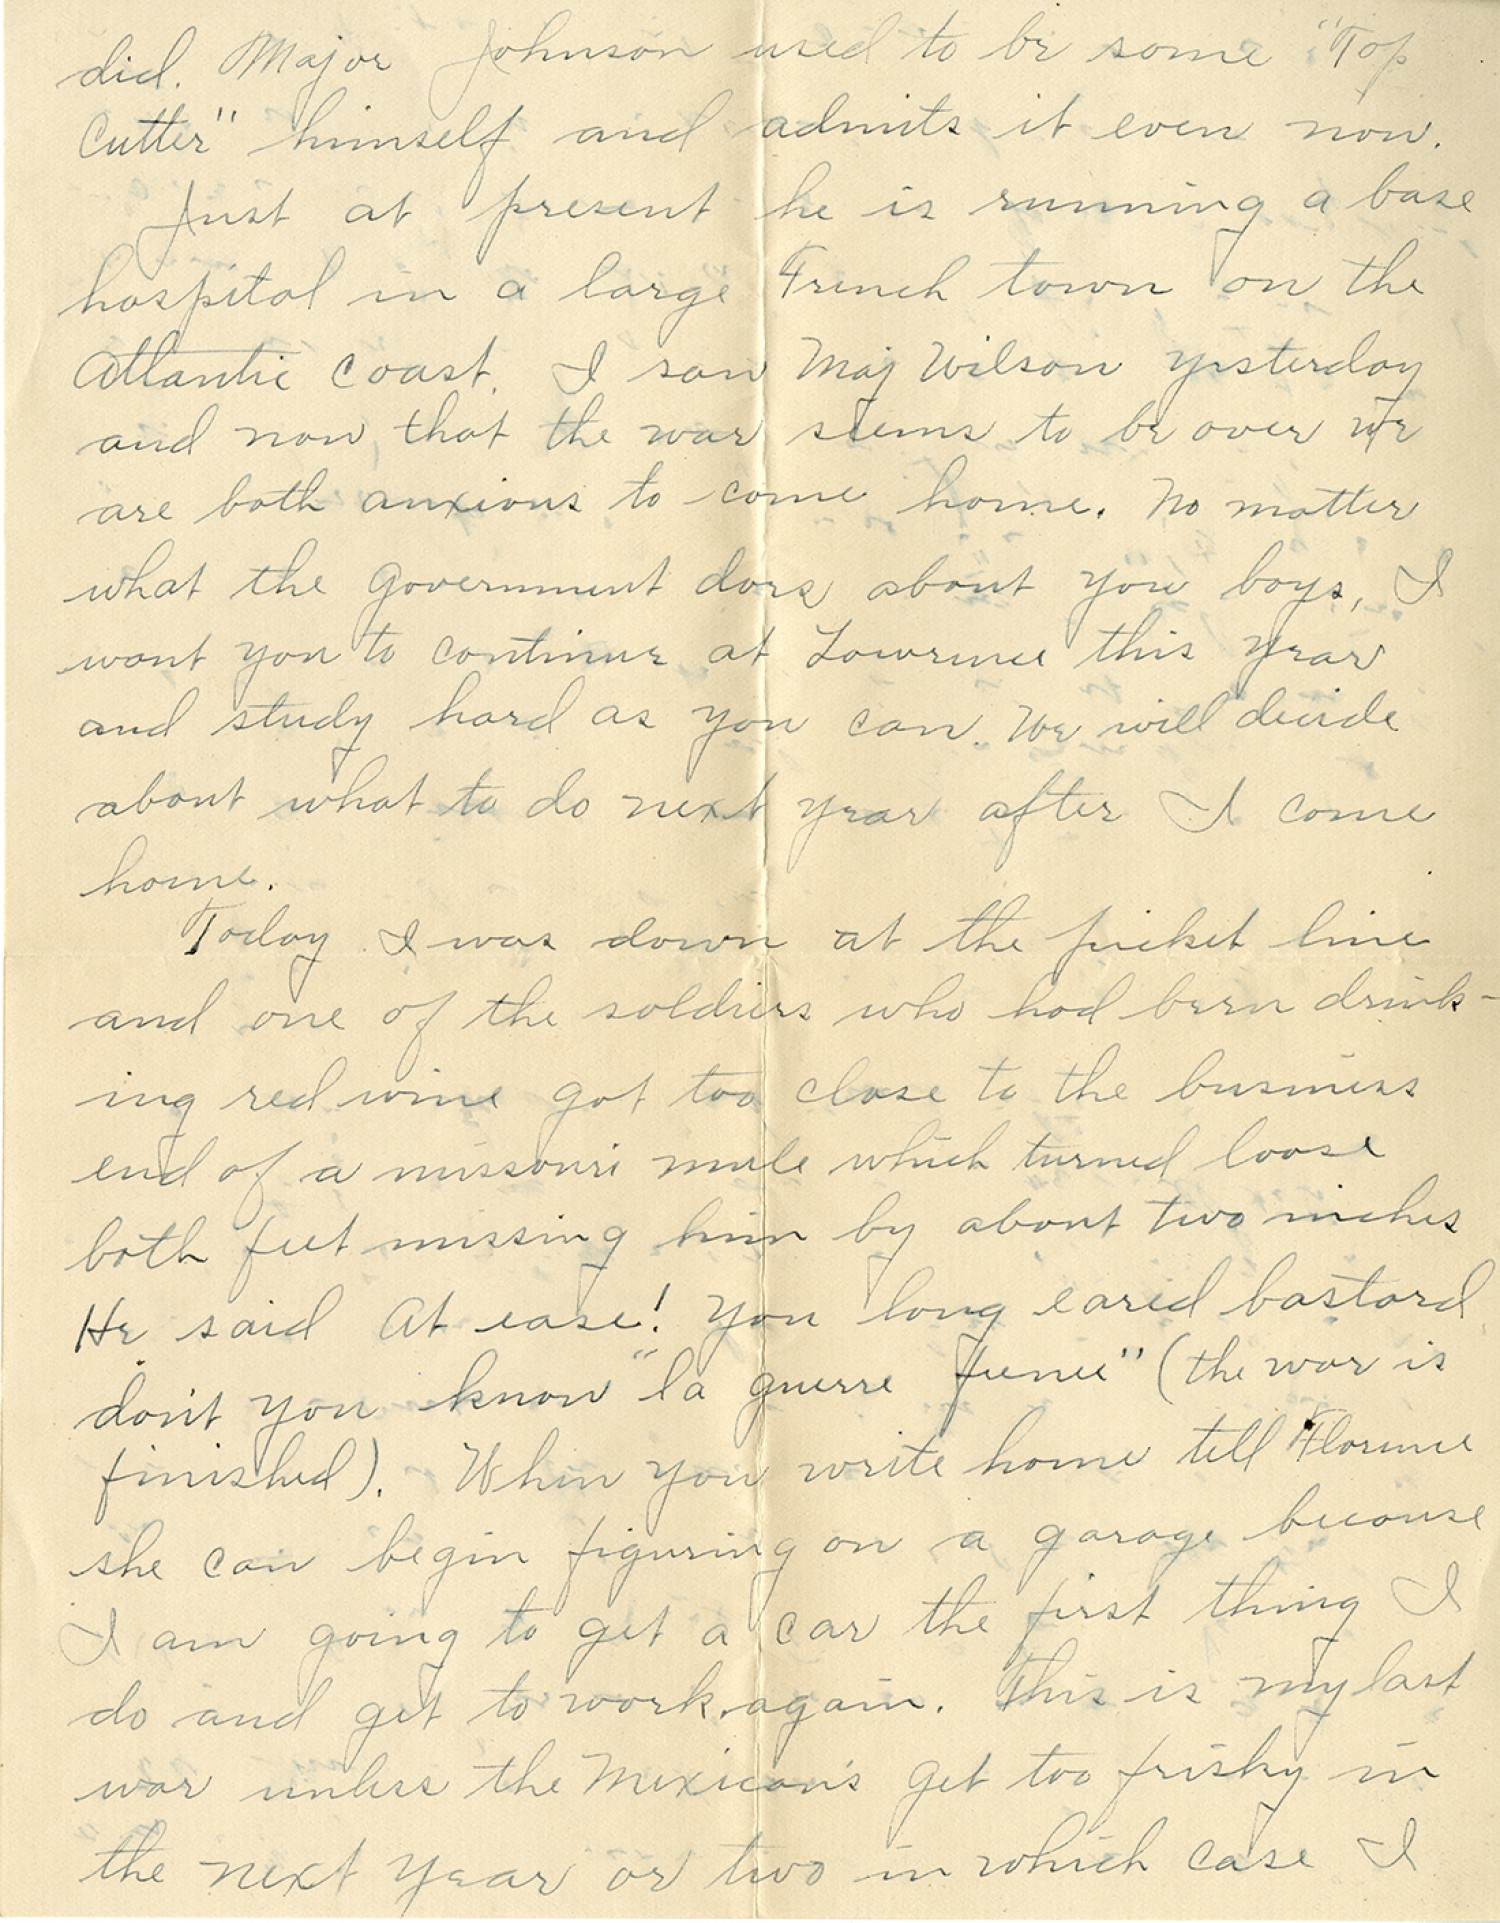 did. Major Johnson used to be some "Top
Cutter" himself and admits it even now.
Just at present he is running a base
hospital in a large French town on the
Atlantic Coast. I saw Maj Wilson yesterday
and now that the war seems to be over we
are both anxious to come home. No matter
what the Government does about you boys, I
want you to continue at Lawrence this year
and study hard as you can. We will decide
about what to do next year after I come
home.
Today I was down at the picket line
and one of the soldiers who had been drink-
ing red wine got too close to the business
end of a missouri mule which turned loose
both feet missing him by about two inches
He said At ease! you long eared bastard
don't you know "la guerre finee" (the war is
finished). When you write home tell Florence
she can begin figuring on a garage because
I am going to get a car the first thing I
do and get to work again. This is my last
war unless the Mexican's get too frisky in
the next year or two in which case I